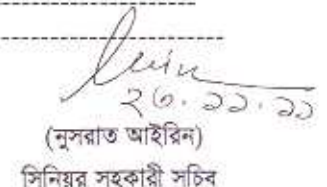 ২৩.১১.১১
(নুসরাত আইরিন)
সিনিয়র সহকারী সচিব